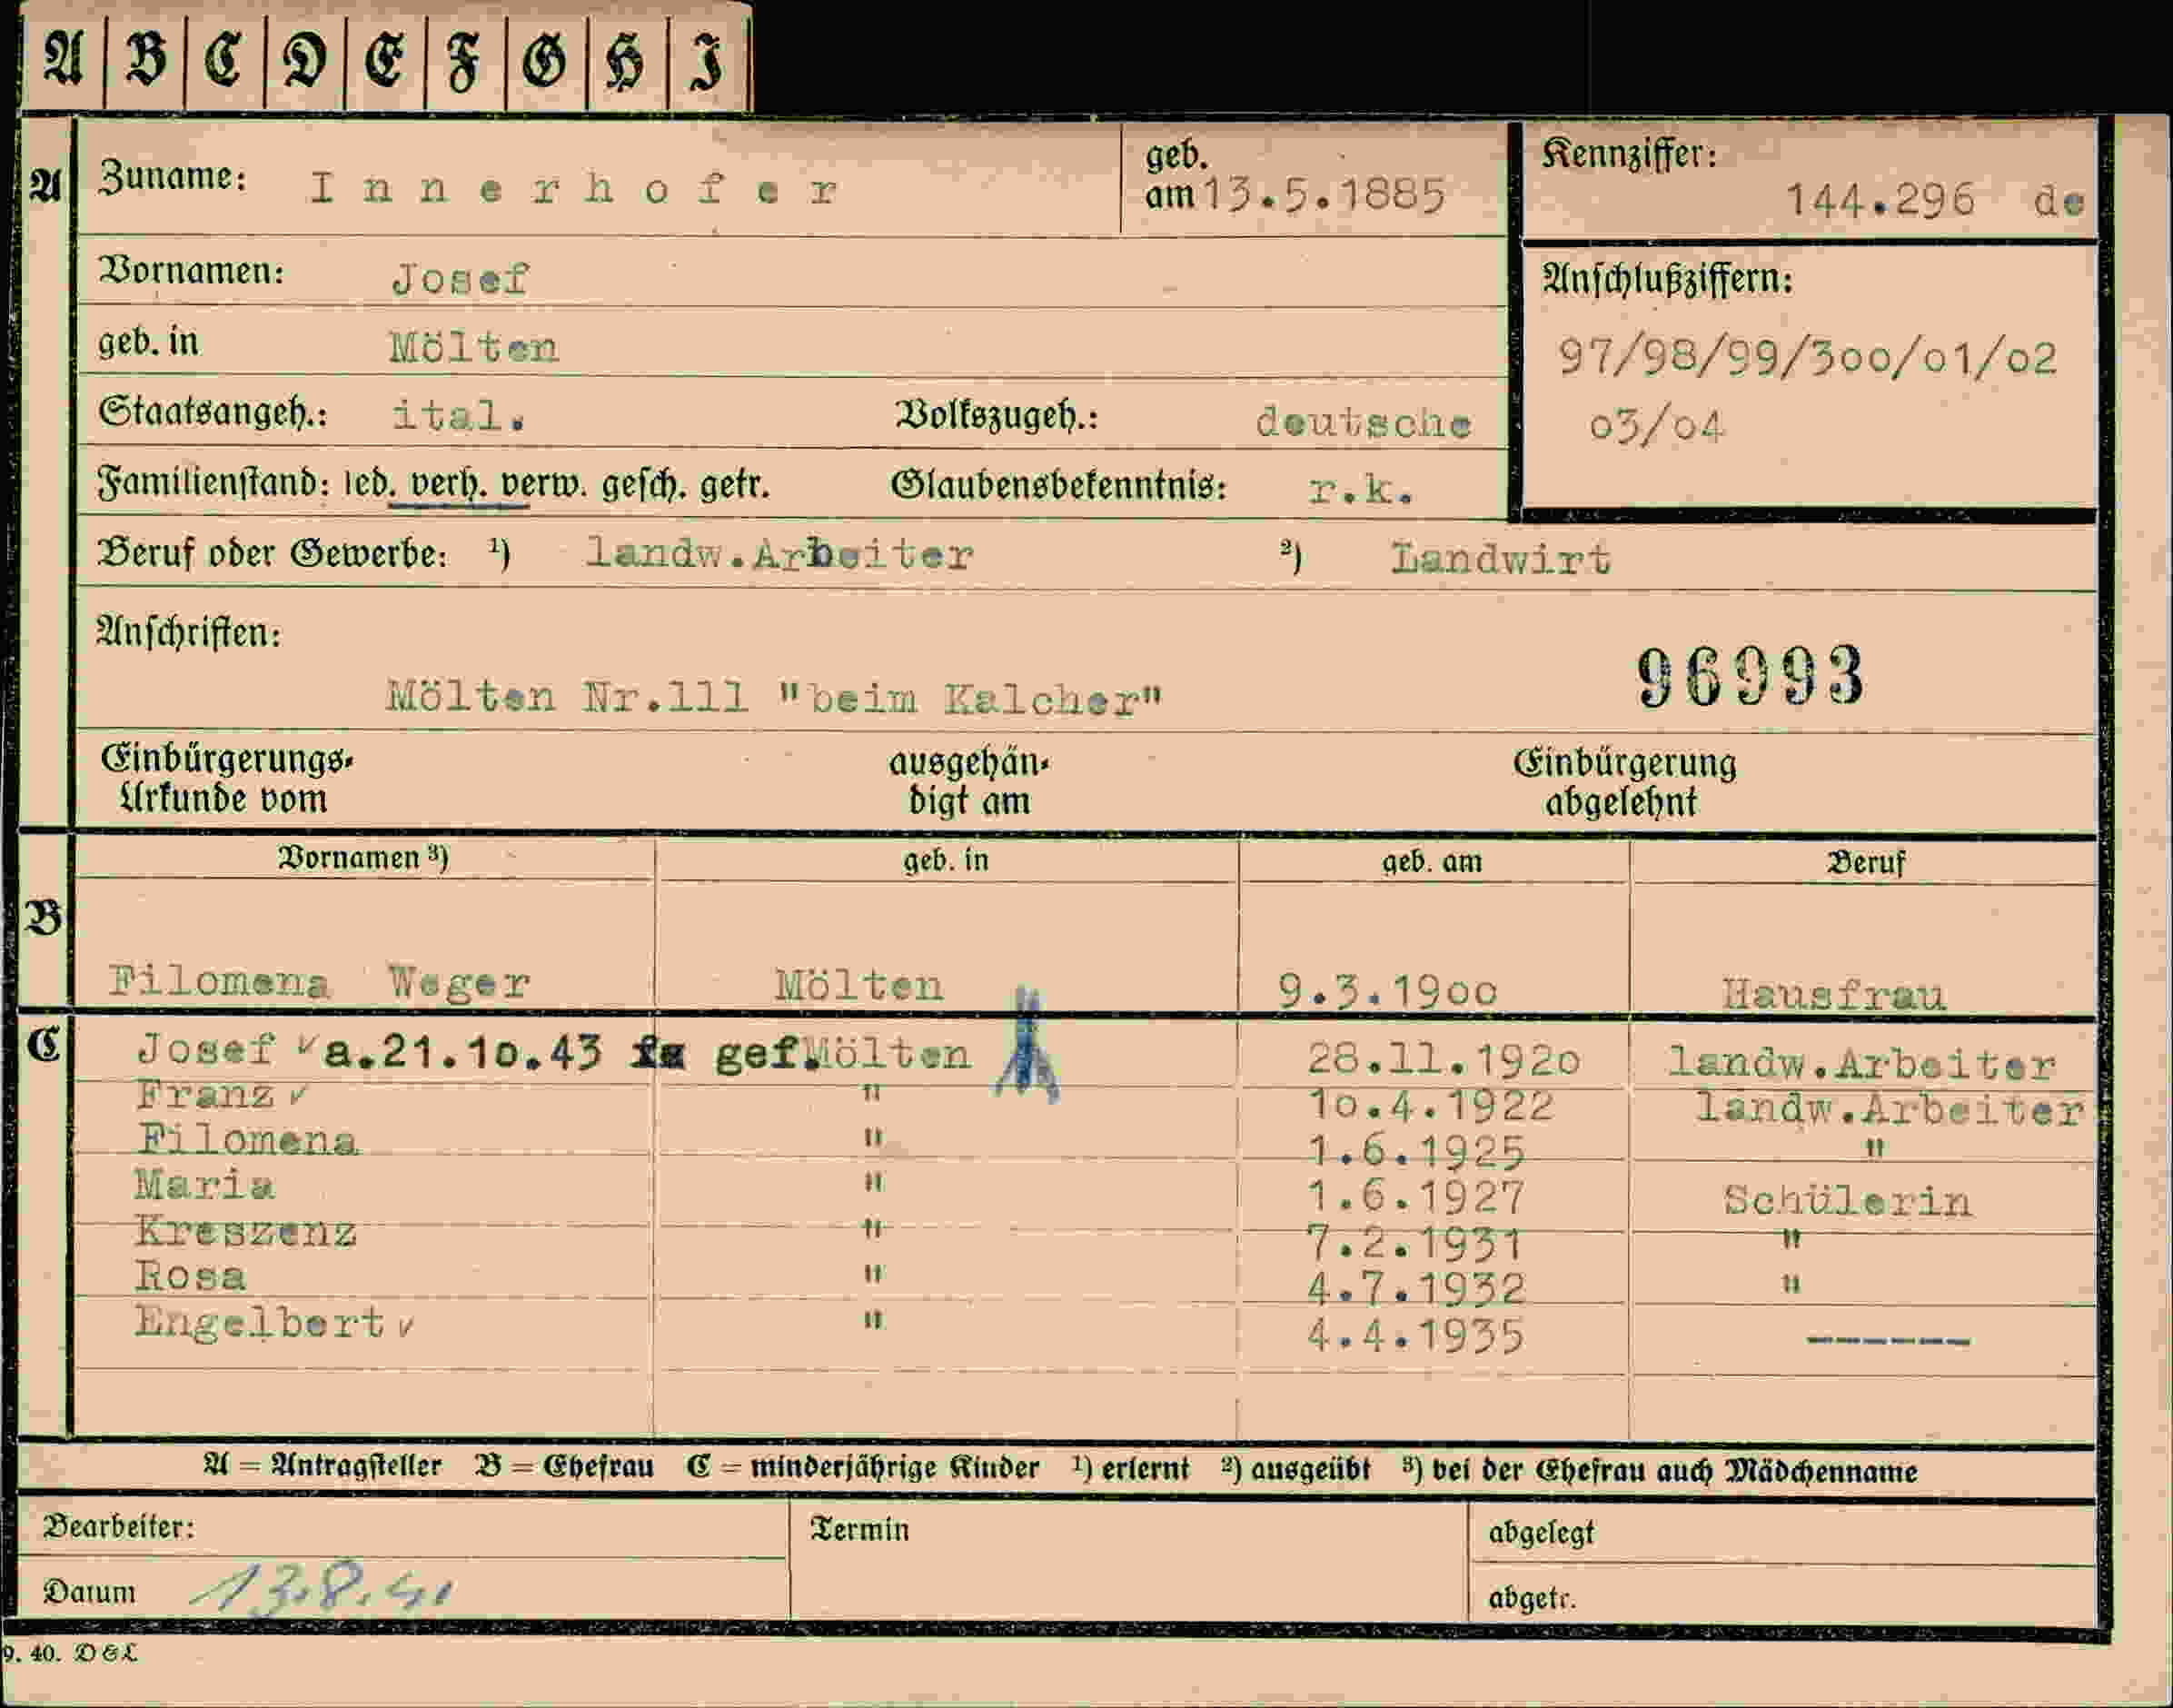 A B C D E F G H I
A Zuname: Innerhofer geb. am 13.5.1885 Kennziffer: 144.296 de
Vornamen: Josef
Anschlußziffern:
geb. in Mölten
97/98/99/300/01/02
Staatsangeh.: ital. Volkszugeh.: deutsche
03/04
Familienstand: led. verh. verw. gesch. getr. Glaubensbekenntnis: r.k.
Beruf oder Gewerbe: ¹) landw.Arbeiter ²) Landwirt
Anschriften:
96993
Mölten Nr.111 "beim Kalcher"
Einbürgerungs-
Urkunde vom
ausgehän-
digt am
Einbürgerung
abgelehnt
B Vornamen ³) geb. in geb. am Beruf
Filomena Weger Mölten 9.3.1900 Hausfrau
C Josef a.21.10.43 gef. Mölten 28.11.1920 landw.Arbeiter
Franz " 10.4.1922 landw.Arbeiter
Filomena " 1.6.1925 "
Maria " 1.6.1927 Schülerin
Kreszenz " 7.2.1931 "
Rosa " 4.7.1932 "
Engelbert " 4.4.1935 ------
A = Antragsteller B = Ehefrau C = minderjährige Kinder ¹) erlernt ²) ausgeübt ³) bei der Ehefrau auch Mädchenname
Bearbeiter: Termin abgelegt
Datum 13.8.41 abgetr.
9. 40. D & L